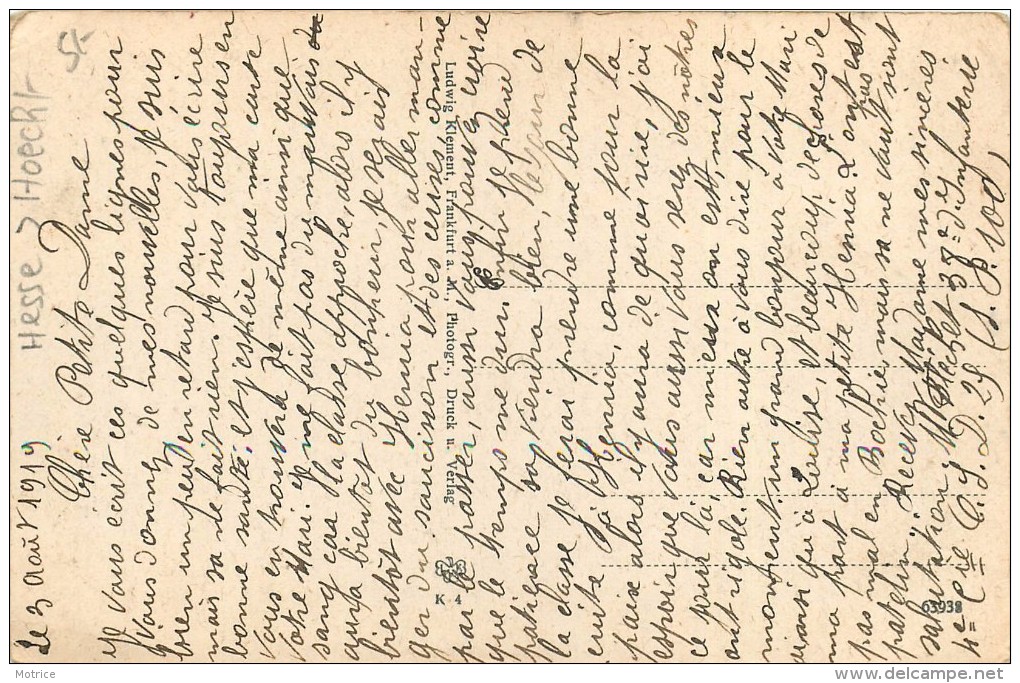 Hesse 3 Hoechst
Le 3 août 1919
Chère Petite Dame
Je vous écrit ces quelques lignes pour
vous donnez de mes nouvelles, je suis
bien un peu en retard pour vous écrire
mais sa ne fait rien. Je suis toujours en
bonne santé, et j'espère que ma carte
vous en trouvera de même ainsi que
votre Mari. Je me fait pas du mauvais
sang car la classe approche, alors il y
aura bientôt du bonheur, je serais
bientôt avec Henria pour aller man-
ger du saucisson et des cuises comme
par le passer, aussi vous pouvez croire
que le temps me dure. Enfin je prend
patience sa viendra bien, le jour de
la classe je ferai prendre une bonne
cuite à Henria, comme pour la
paix alors il y aura de quoi rire, j'ai
espoir que vous aussi vous serez des nôtres
ce jour là, car mieux on est, mieux
ont rigole. Rien autre à vous dire pour le
momment un grand bonjour à votre Mari
ainssi qu'à Louise, et beaucoup de choses de
ma part à ma petite Henria. L'ont est
pas
pas mal en Bochie, mais sa ne vaut point
patelin. Recevez Madame mes sincères
salutations,
4e Cie 38e d'Infanterie
C. I. D. 25 S. P. 100
Ludwig Klement, Frankfurt a. M., Photogr., Druck u. Verlag
K 4
63938
© Motrice
delcampe.net